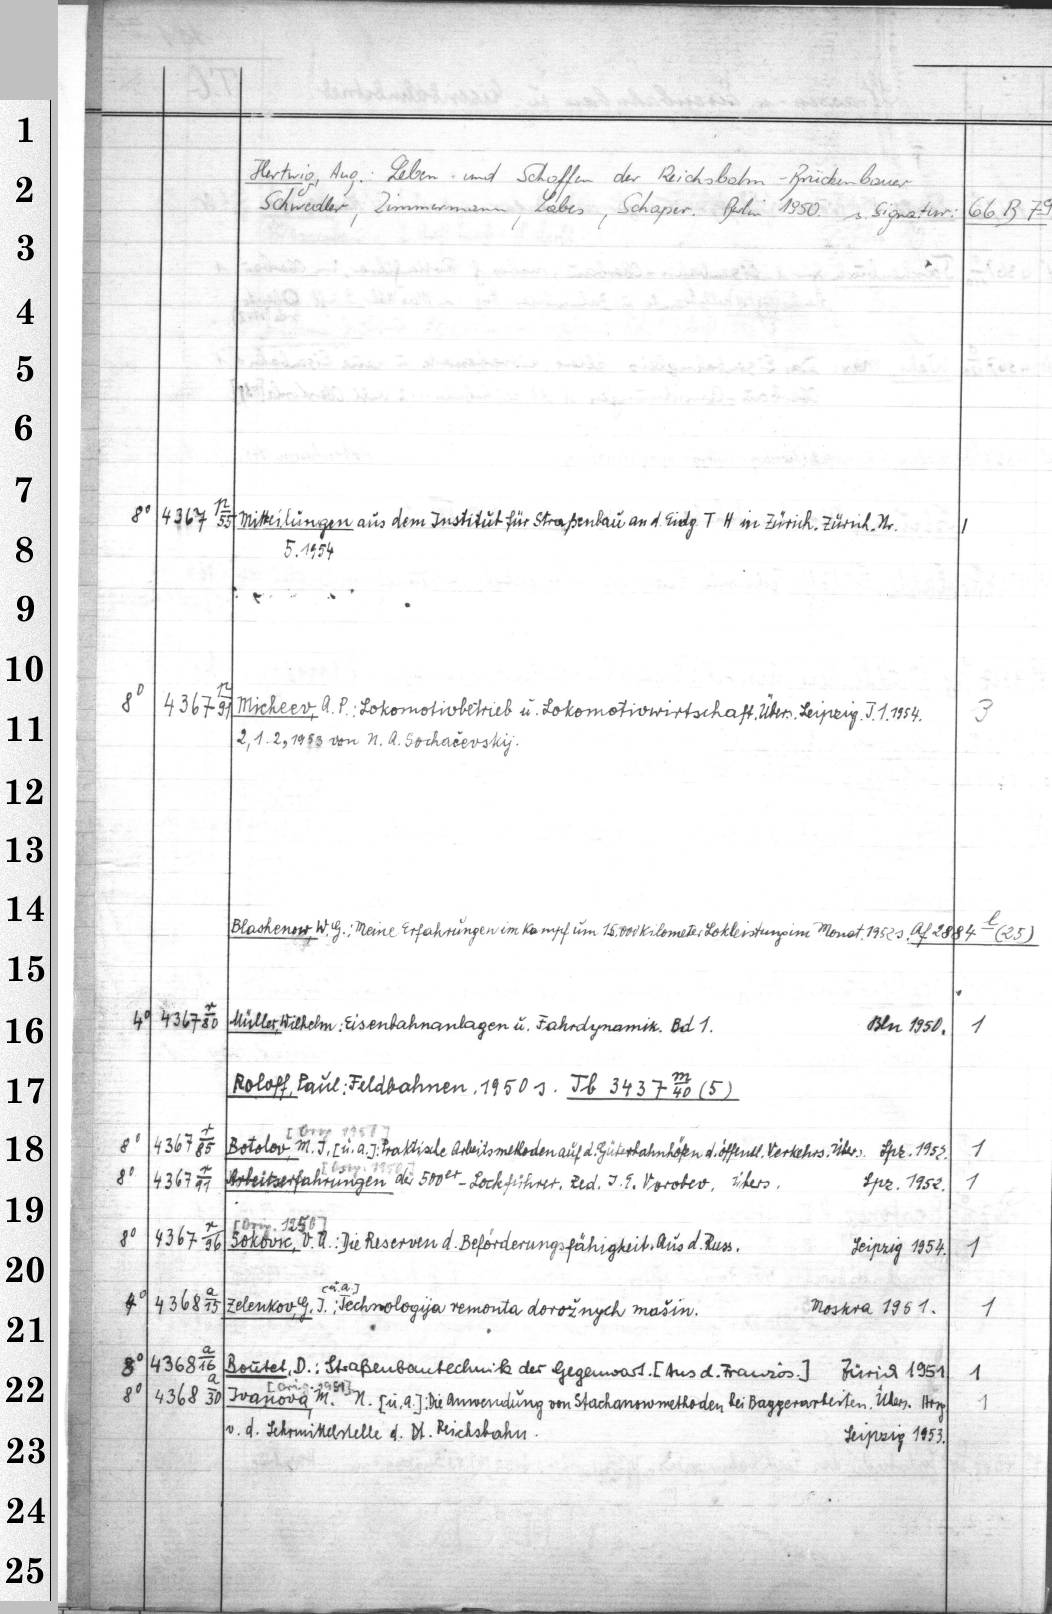 1
2
3
4
5
6
7
8
9
10
11
12
13
14
15
16
17
18
19
20
21
22
23
24
25
Hertwig, Aug.: Leben und Schaffen der Reichsbahn-Brückenbauer
Schwedler, Zimmermann, Labes, Schaper. Berlin 1950. s. Signatur: 66 B 79
8° 4367 n/55 Mitteilungen aus dem Institut für Straßenbau an d. Eidg. T H in Zürich. Zürich. Nr. 1
5. 1954
8° 4367 n/91 Micheev, A. P.: Lokomotivbetrieb u. Lokomotivwirtschaft. Übers. Leipzig. T. 1. 1954. 3
2, 1-2, 1953 von N. A. Sochačevskij.
Blashenow, W. G.: Meine Erfahrungen im Kampf um Kilometer Lokleistung im Monat. 1952 s. Af 2884 l (25)
4° 4367 r/80 Müller, Wilhelm: Eisenbahnanlagen u. Fahrdynamik. Bd 1. Bln 1950. 1
Roloff, Paul: Feldbahnen. 1950 s. Tb 3437 m/40 (5)
8° 4367 r/85 Botolov, M. I. [u. a.]: Praktische Arbeitsmethoden auf d. Güterbahnhöfen d. öffentl. Verkehrs. Übers. Lpz. 1952. 1
8° 4367 r/91 Arbeitserfahrungen der 500er-Lockführer. Red. I. E. Vorobev. Übers. Lpz. 1952. 1
[Orig. 1950]
8° 4367 r/96 Sokovic, V. A.: Die Reserven d. Beförderungsfähigkeit. Aus d. Russ. Leipzig 1954. 1
[u.a.]
4° 4368 a/15 Zelenkov, G. I.: Technologija remonta dorožnych mašin. Moskva 1951. 1
8° 4368 a/16 Boutet, D.: Straßenbautechnik der Gegenwart. [Aus d. Französ.] Zürich 1951. 1
[Orig. 1951]
8° 4368 a/30 Ivanova, M. N. [u. a.]: Die Anwendung von Stachanowmethoden bei Baggerarbeiten. Übers. Hrsg 1
v. d. Lehrmittelstelle d. Dt. Reichsbahn. Leipzig 1953.